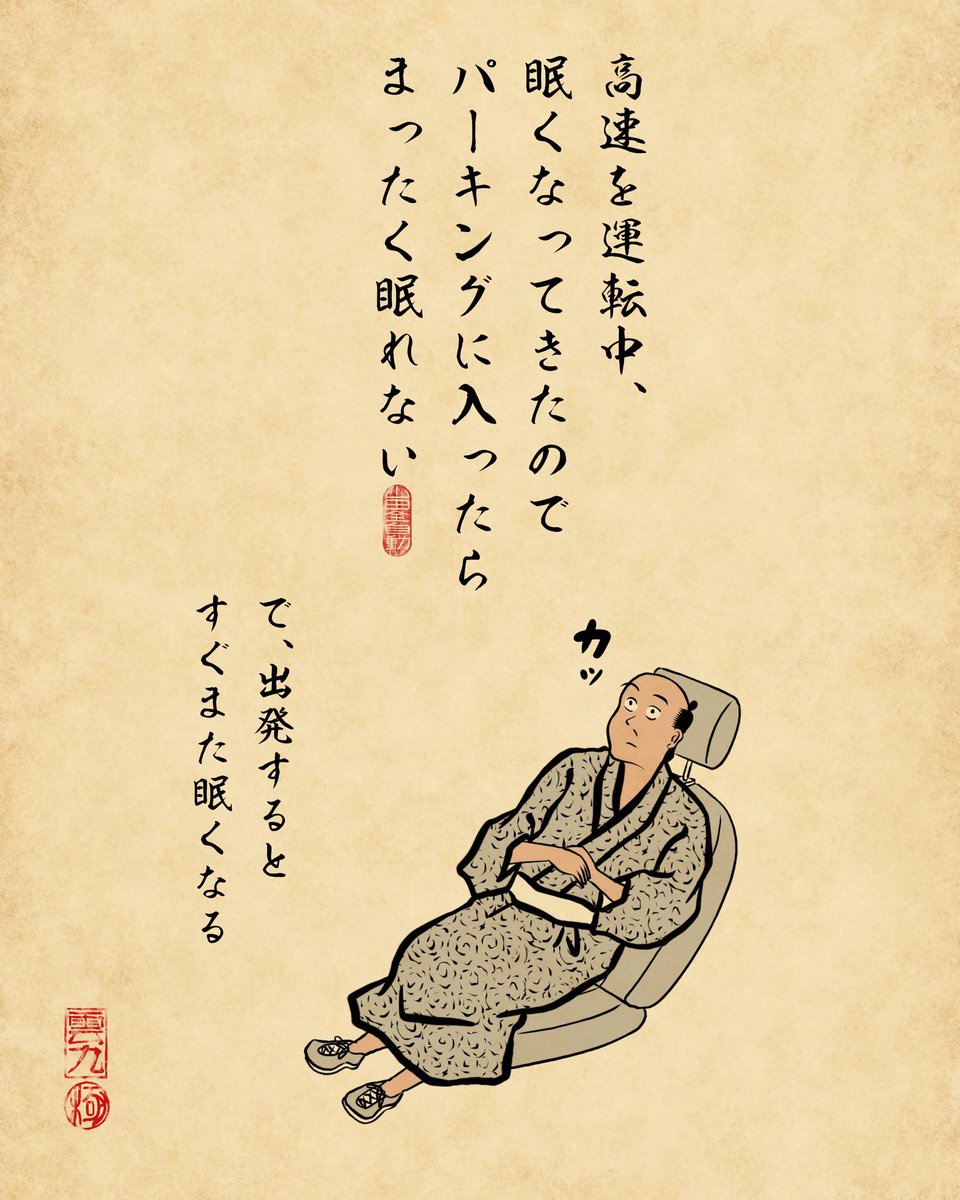 高速を運転中、
眠くなってきたので
パーキングに入ったら
まったく眠れない
カッ
で、出発すると
すぐまた眠くなる